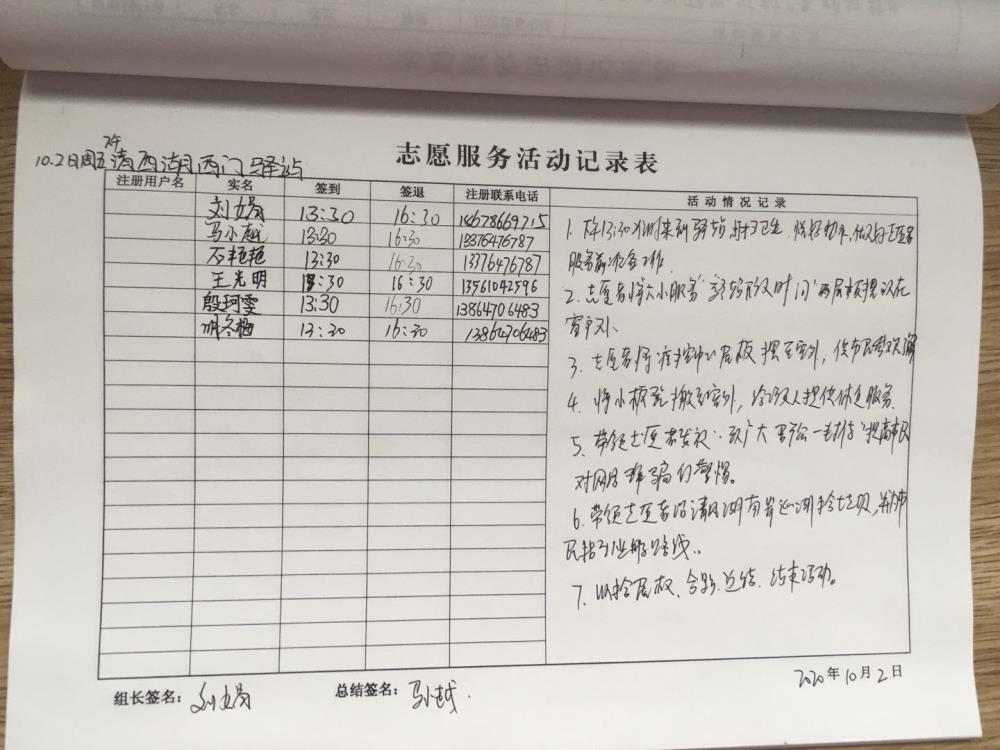 志愿服务活动记录表
下午
10.2日周五清西湖西门驿站
注册用户名 实名 签到 签退 注册联系电话 活动情况记录
刘娟 13:30 16:30 18678669715
马小越 13:30 16:30 13376476787
石艳艳 13:30 16:30 13376476787
王光明 13:30 16:30 13561042596
殷珂雯 13:30 16:30 13864706483
明冬梅 13:30 16:30 13864706483
1. 下午13:30准时来到驿站,打扫卫生,做好志愿
服务前准备工作.
2. 志愿者将大小服务 时间 两展板摆放在
室门外、
3. 志愿者将 展板摆至室外,供市民 了解
4. 将小板凳搬到室外,给路人提供休息服务.
5. 带领志愿者发放:致广大 一封信 提高市民
对网络诈骗的警惕。
6. 带领志愿者沿清风湖南岸 湖捡垃圾,并为市
民指引 路线..
7. 收拾展板、合影、总结、结束活动。
2020年10月2日
组长签名:刘娟 总结签名:马小越.